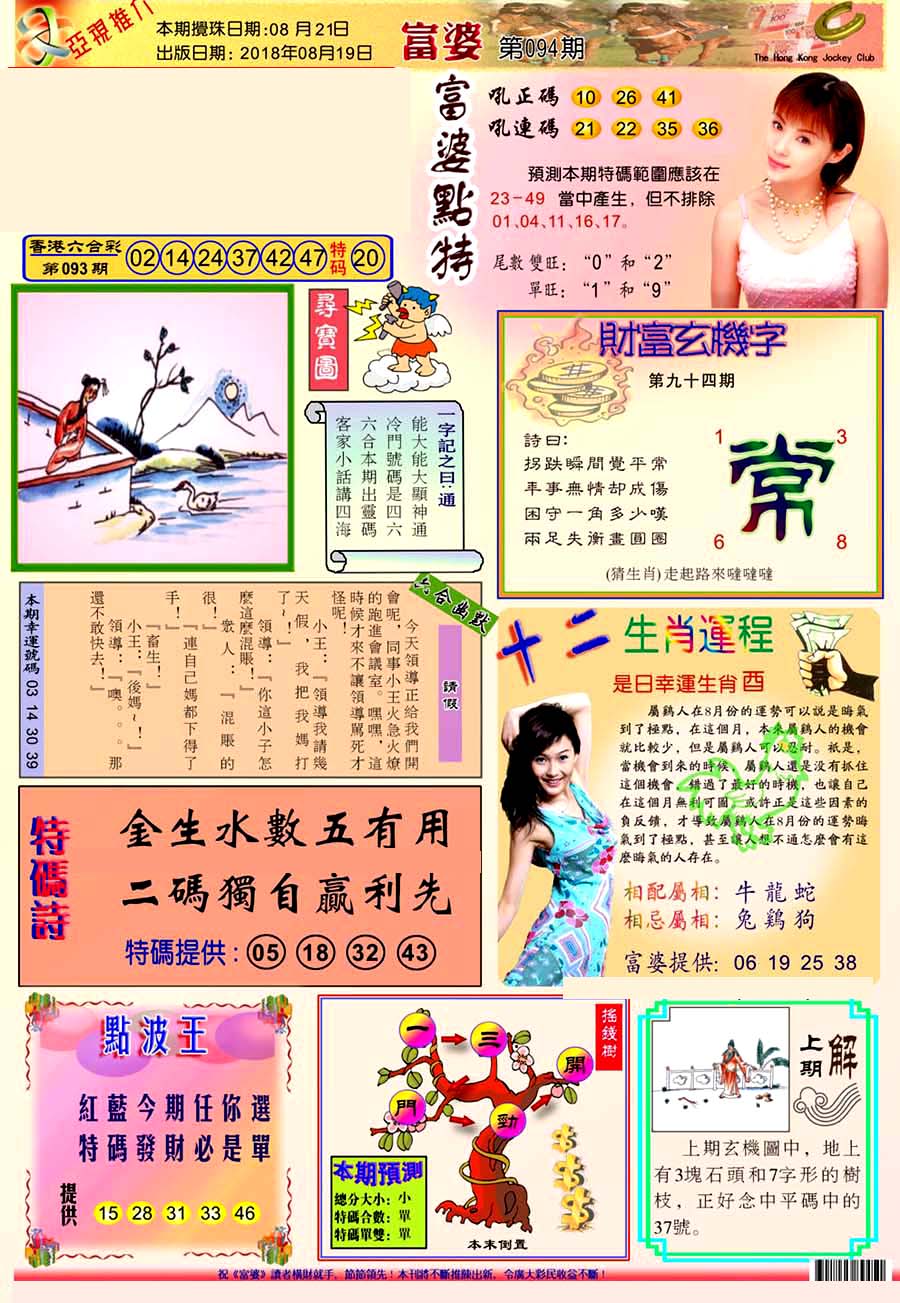 亞視推介
本期攪珠日期:08 月 21日
出版日期: 2018年08月19日
富婆 第094期
The Hong Kong Jockey Club
富婆點特
吼正碼 10 26 41
吼連碼 21 22 35 36
預測本期特碼範圍應該在
23-49 當中產生，但不排除
01、04、11、16、17。
尾數雙旺：“0”和“2”
單旺：“1”和“9”
香港六合彩
第093期
02 14 24 37 42 47 特码 20
尋寶圖
一字記之曰：通
能大能大顯神通
冷門號碼是四六
六合本期出靈碼
客家小話講四海
財富玄機字
第九十四期
詩曰:
拐跌瞬間覺平常
年事無情却成傷
困守一角多少嘆
兩足失衡畫圓圈
1 3
常
6 8
(猜生肖)走起路來噠噠噠
六合幽默
請假
今天領導正給我們開
會呢，同事小王火急火燎
的跑進會議室。嘿嘿，這
時候才來不讓領導罵死才
怪呢！
小王：『領導我請幾
天假，我把我媽打
了~！』
領導：『你這小子怎
麼這麼混賬！』
衆人：『混賬的
很！』
『連自己媽都下得了
手！』
『畜生！』
小王：『後媽~！』
領導：『噢。。。那
還不敢快去！』
本期幸運號碼 03 14 30 39
十二生肖運程
是日幸運生肖 酉
屬鷄人在8月份的運勢可以說是晦氣
到了極點，在這個月，本來屬鷄人的機會
就比較少，但是屬鷄人可以忍耐。衹是，
當機會到來的時候，屬鷄人還是没有抓住
這個機會，錯過了最好的時機，也讓自己
在這個月無利可圖，或許正是這些因素的
負反饋，才導致屬鷄人在8月份的運勢晦
氣到了極點，甚至讓人想不通怎麼會有這
麼晦氣的人存在。
相配屬相：牛 龍 蛇
相忌屬相：兔 鷄 狗
富婆提供：06 19 25 38
特碼詩
金生水數五有用
二碼獨自贏利先
特碼提供：05 18 32 43
點波王
紅藍今期任你選
特碼發財必是單
提供 15 28 31 33 46
搖錢樹
一 三
開
門 勁
本期預測
總分大小：小
特碼合數：單
特碼單雙：單
本末倒置
上期解
上期玄機圖中，地上
有3塊石頭和7字形的樹
枝，正好念中平碼中的
37號。
祝《富婆》讀者橫財就手，節節領先！本刊將不斷推陳出新，令廣大彩民收益不斷！